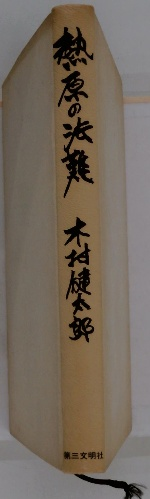 熱原の法難
木村健太郎
第三文明社